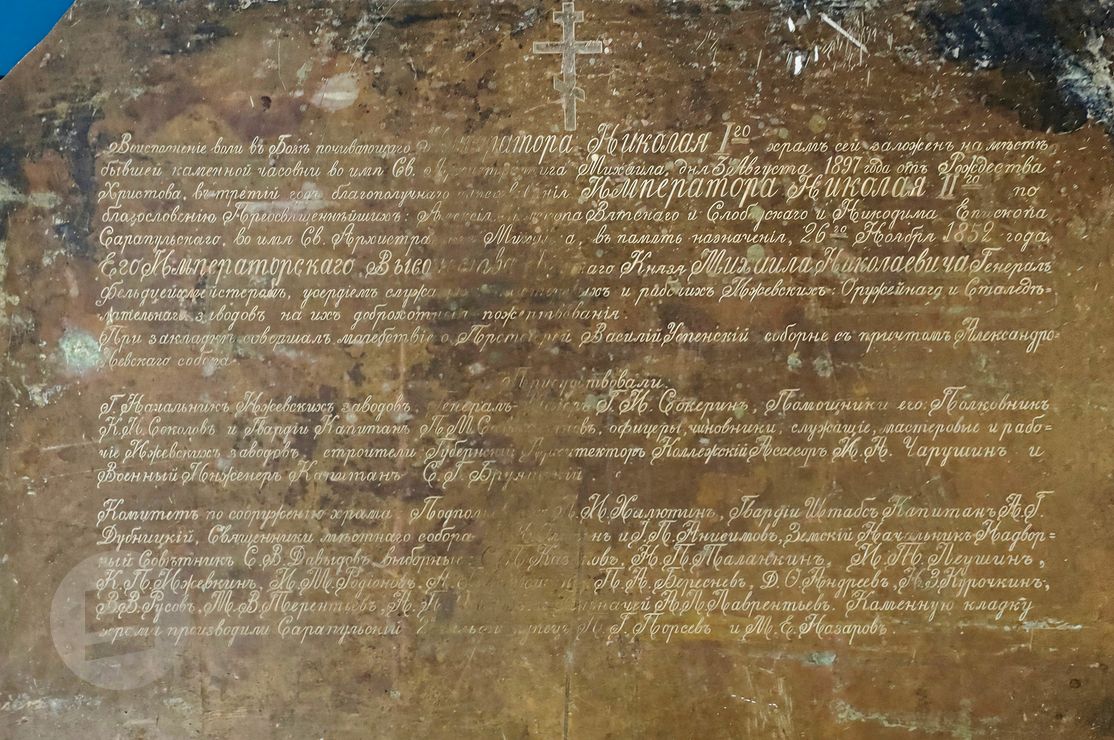 Во исполненіе воли въ Бозѣ почивающаго Императора Николая Iго храмъ сей заложенъ на мѣстѣ
бывшей каменной часовни во имя Св. Архистратига Михаила, дня 3 Августа 1897 года отъ Рождества
Христова, въ третій годъ благополучнаго царствованія Императора Николая IIго по
благословенію Преосвященнѣйшихъ: Алексія Епископа Вятскаго и Слободскаго и Никодима Епископа
Сарапульскаго, во имя Св. Архистратига Михаила, въ память назначенія, 26го Ноября 1852 года,
Его Императорскаго Высочества Великаго Князя Михаила Николаевича Генералъ
Фельдцейхмейстеромъ, усердіемъ служащихъ мастеровыхъ и рабочихъ Ижевскихъ: Оружейнаго и Сталедѣ=
лательнаго заводовъ на ихъ доброхотныя пожертвованія.
При закладкѣ совершалъ молебствіе о. Протоіерей Василій Успенскій соборне съ причтомъ Александро=
Невскаго собора
Присутствовали:
Г. Начальникъ Ижевскихъ заводовъ Генералъ- Г. И. Сокеринъ, Помощники его: Полковникъ
К. П. Соколовъ и Гвардіи Капитанъ офицеры, чиновники, служащіе, мастеровые и рабо=
чіе Ижевскихъ заводовъ строители Губернскій Архитекторъ Коллежскій Ассесоръ И. А. Чарушинъ и
Военный Инженеръ Капитанъ С. Г.
Комитетъ по сооруженію храма И. Милютинъ, Гвардіи Штабсъ Капитанъ А. Г.
Дубницкій, Священники мѣстнаго собора и І. П. Анисимовъ, Земскій Начальникъ Надвор=
ный Совѣтникъ С. В. Давыдовъ, выборные Н. П. Таланкинъ, И. Т. Леушинъ,
К. П. Ижевкинъ, И. М. Родіоновъ, П. А. Бересневъ, Д. Ѳ. Андреевъ, И. З. Курочкинъ,
В. В. Русовъ, М. В. Терентьевъ, казначей А. П. Лаврентьевъ. Каменную кладку
храма производили Сарапульскій купецъ П. Г. Порсевъ и М. Е. Назаровъ.